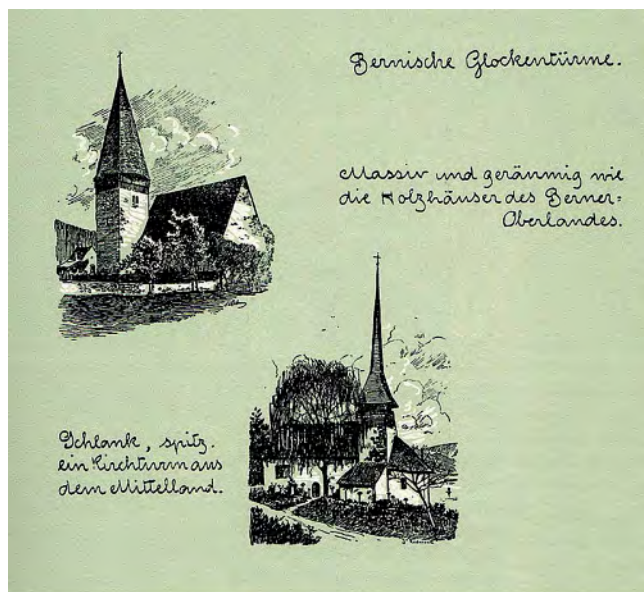 Bernische Glockentürme.
Massiv und geräumig wie
die Holzhäuser des Berner-
Oberlandes.
Schlank, spitz.
ein Kirchturm aus
dem Mittelland.